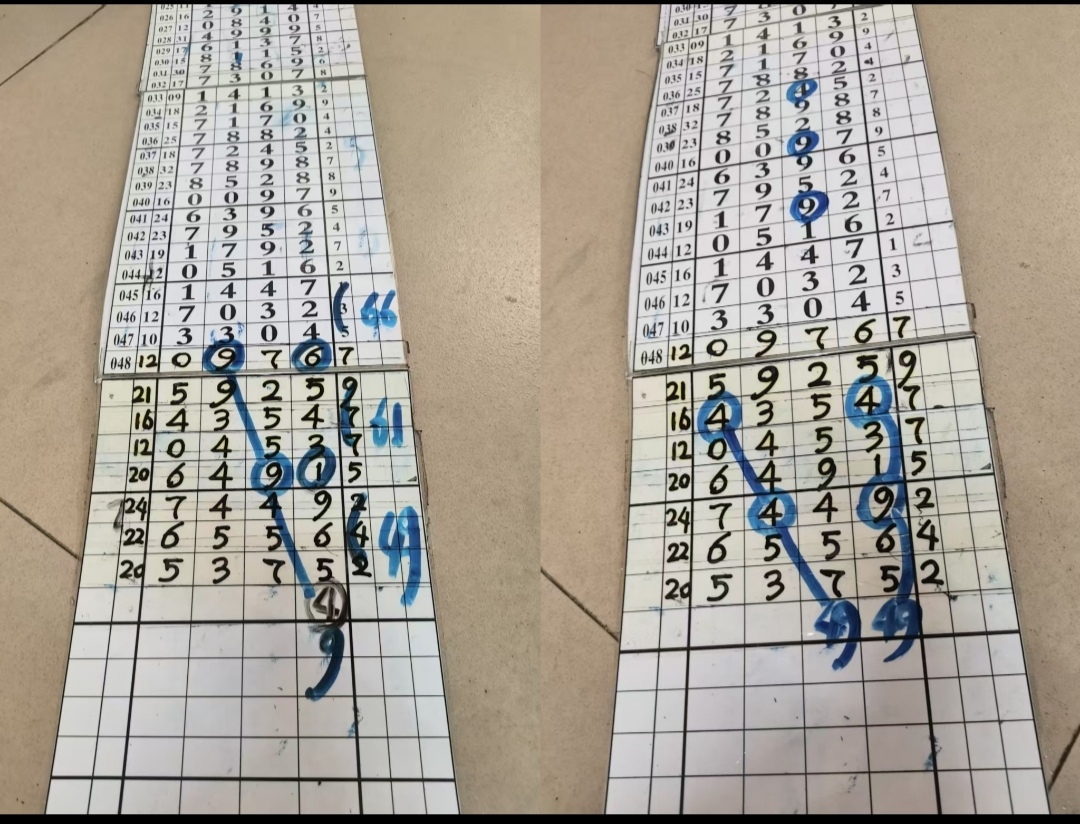 026 16 2 9 1 4 7
027 12 0 8 4 0 5
028 31 4 9 9 9 8
029 17 6 1 3 7 2
030 15 8 1 1 5 6
031 30 7 8 6 9 8
032 17 7 3 0 7
033 09 1 4 1 3 2
034 18 2 1 6 9 9
035 15 7 1 7 0 4
036 25 7 8 8 2 4
037 18 7 2 4 5 2
038 32 7 8 9 8 7
039 23 8 5 2 8 8
040 16 0 0 9 7 9
041 24 6 3 9 6 5
042 23 7 9 5 2 4
043 19 1 7 9 2 7
044 12 0 5 1 6 2
045 16 1 4 4 7
046 12 7 0 3 2 3 66
047 10 3 3 0 4 5
048 12 0 9 7 6 7
21 5 9 2 5 9
16 4 3 5 4 7 61
12 0 4 5 3 7
20 6 4 9 1 5
24 7 4 4 9 2
22 6 5 5 6 4 49
20 5 3 7 5 2
4
9
032 17 7 3 0 7
033 09 1 4 1 3 2
034 18 2 1 6 9 9
035 15 7 1 7 0 4
036 25 7 8 8 2 4
037 18 7 2 4 5 2
038 32 7 8 9 8 7
039 23 8 5 2 8 8
040 16 0 0 9 7 9
041 24 6 3 9 6 5
042 23 7 9 5 2 4
043 19 1 7 9 2 7
044 12 0 5 1 6 2
045 16 1 4 4 7 1
046 12 7 0 3 2 3
047 10 3 3 0 4 5
048 12 0 9 7 6 7
21 5 9 2 5 9
16 4 3 5 4 7
12 0 4 5 3 7
20 6 4 9 1 5
24 7 4 4 9 2
22 6 5 5 6 4
20 5 3 7 5 2
49 49